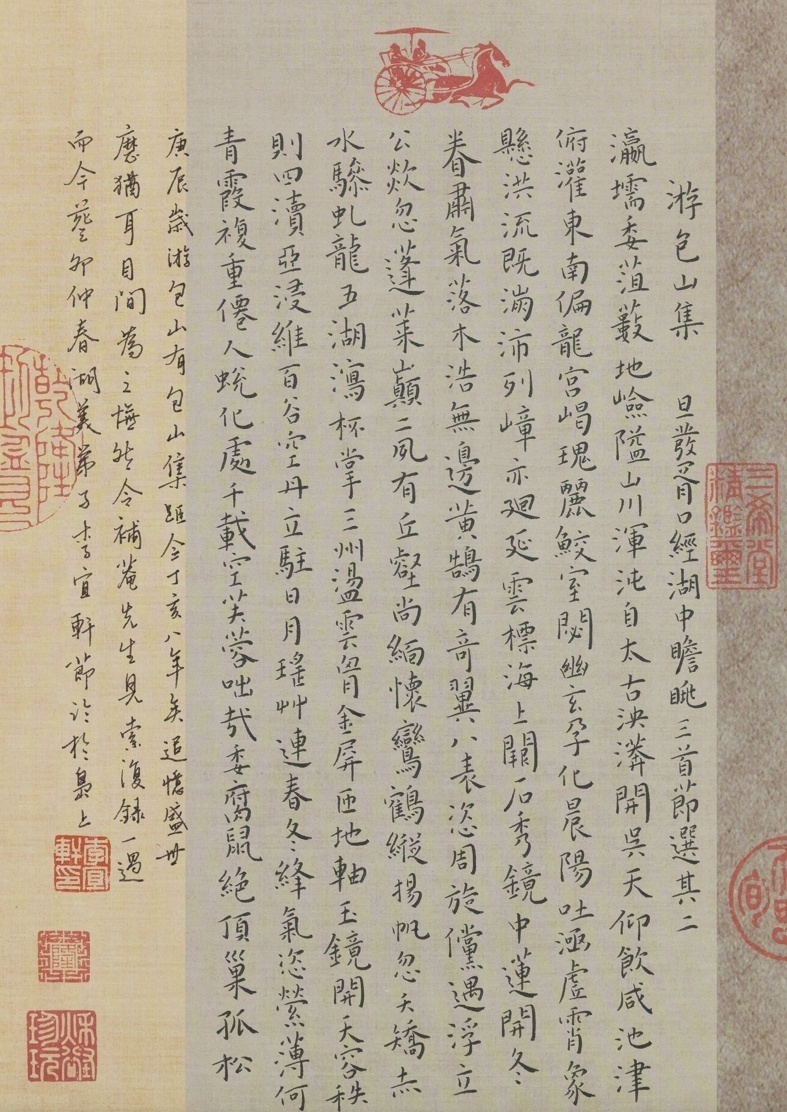 游包山集 旦發胥口經湖中瞻眺三首節選其二
瀛壖委菹藪地嶮隘山川渾沌自太古泱漭開吳天仰飲咸池津
俯灌東南偏龍宮嵑瑰麗鮫室閟幽玄孕化晨陽吐涵虛霄象
懸洪流既滿沛列嶂亦廻延雲標海上闕石秀鏡中蓮開冬
眷肅氣落木浩無邊黃鵠有奇翼八表恣周旋儻遇浮立
公欻忽蓬萊巔二夙有丘壑尚緬懷鸞鶴縱揚帆忽夭矯赤
水驂虬龍五湖瀉杯掌三州盪雲胷金屏匝地軸玉鏡開天容秩
則四瀆亞浸維百谷空丹立駐日月瑤艸連春冬絳氣恣縈薄何
青霞複重僊人蛻化處千載空芙蓉咄哉委腐鼠絕頂巢孤松
庚辰歲游包山有包山集距今丁亥八年矣追憶盛世
歷猶耳目間為之憮然今補菴先生見索復錄一過
而今癸卯仲春湖美弟子李宜軒節臨於島上
三希堂精鑑璽
乾隆
李宜軒印
珍玩